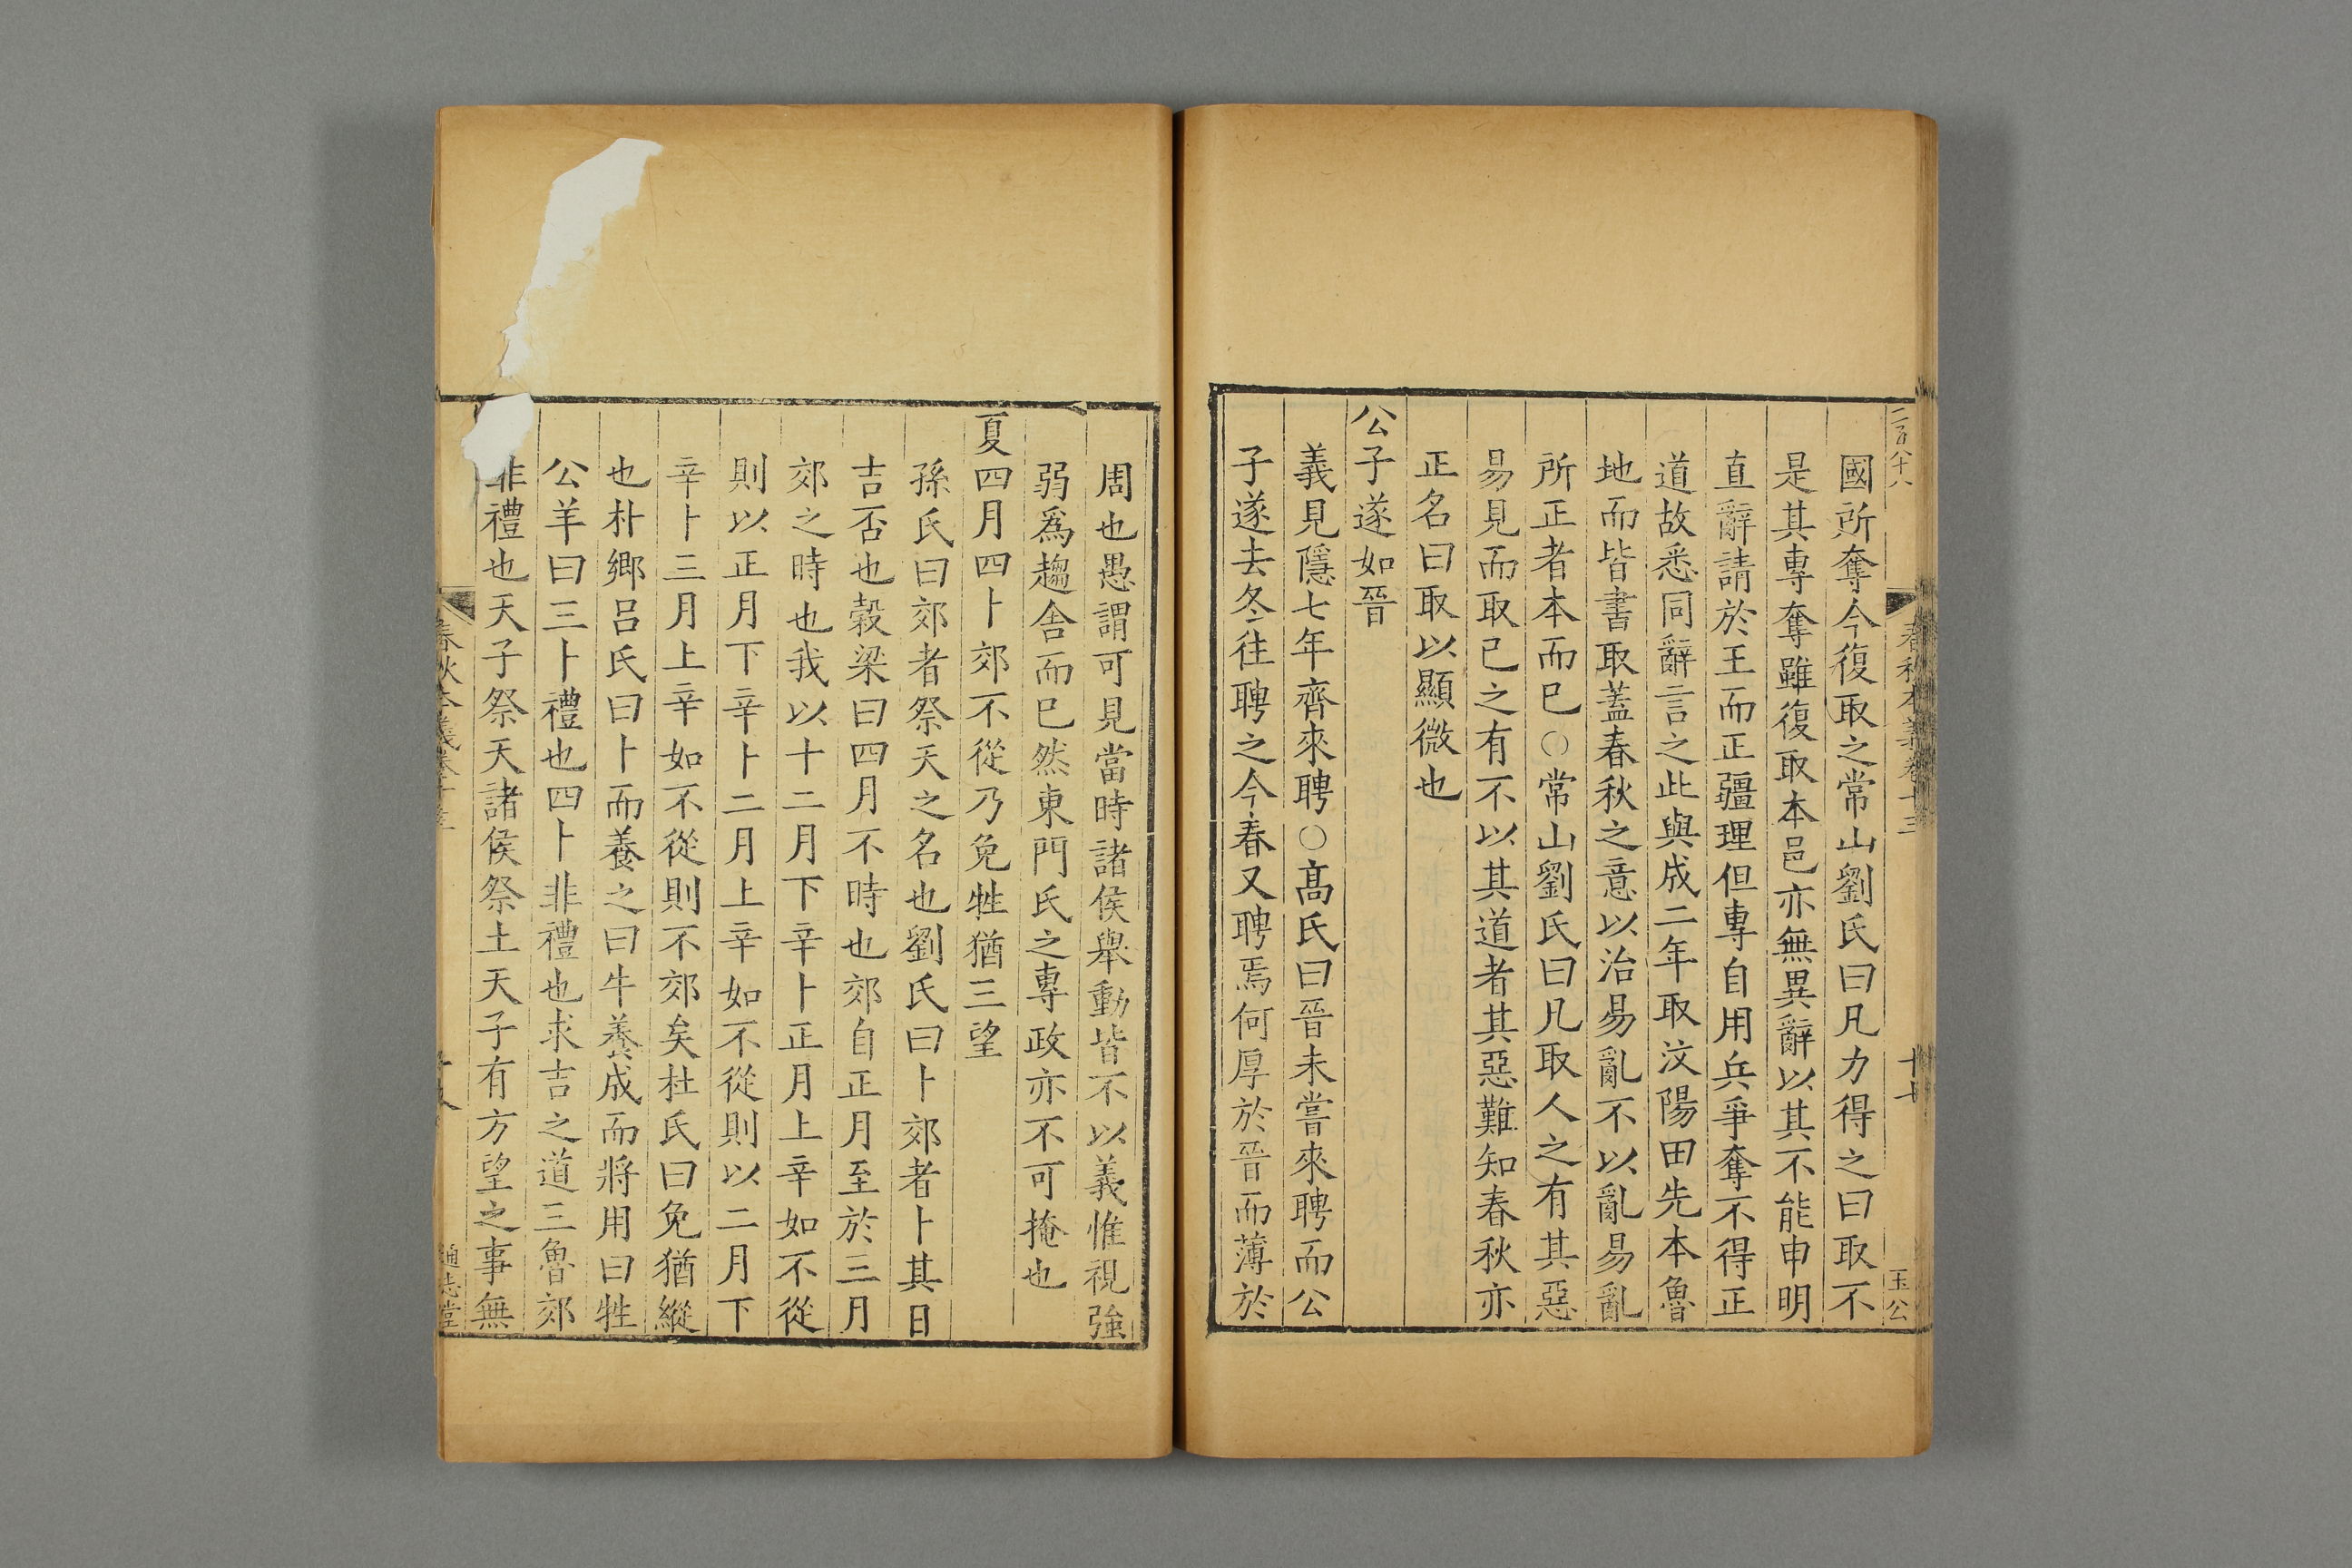 二百八十八
春秋本義卷十三
十七
玉公
國所奪今復取之常山劉氏曰凡力得之曰取不
是其專奪雖復取本邑亦無異辭以其不能申明
直辭請於王而正疆理但專自用兵爭奪不得正
道故悉同辭言之此與成二年取汶陽田先本魯
地而皆書取蓋春秋之意以治易亂不以亂易亂
所正者本而巳○常山劉氏曰凡取人之有其惡
易見而取已之有不以其道者其惡難知春秋亦
正名曰取以顯微也
公子遂如晉
義見隱七年齊來聘○髙氏曰晉未嘗來聘而公
子遂去冬往聘之今春又聘焉何厚於晉而薄於
周也愚謂可見當時諸侯舉動皆不以義惟視強
弱爲趨舍而巳然東門氏之專政亦不可掩也
夏四月四卜郊不從乃免牲猶三望
孫氏曰郊者祭天之名也劉氏曰卜郊者卜其日
吉否也穀梁曰四月不時也郊自正月至於三月
郊之時也我以十二月下辛卜正月上辛如不從
則以正月下辛卜二月上辛如不從則以二月下
辛卜三月上辛如不從則不郊矣杜氏曰免猶縱
也朴鄉呂氏曰卜而養之曰牛養成而將用曰牲
公羊曰三卜禮也四卜非禮也求吉之道三魯郊
非禮也天子祭天諸侯祭土天子有方望之事無
春秋本義卷十三
通志堂